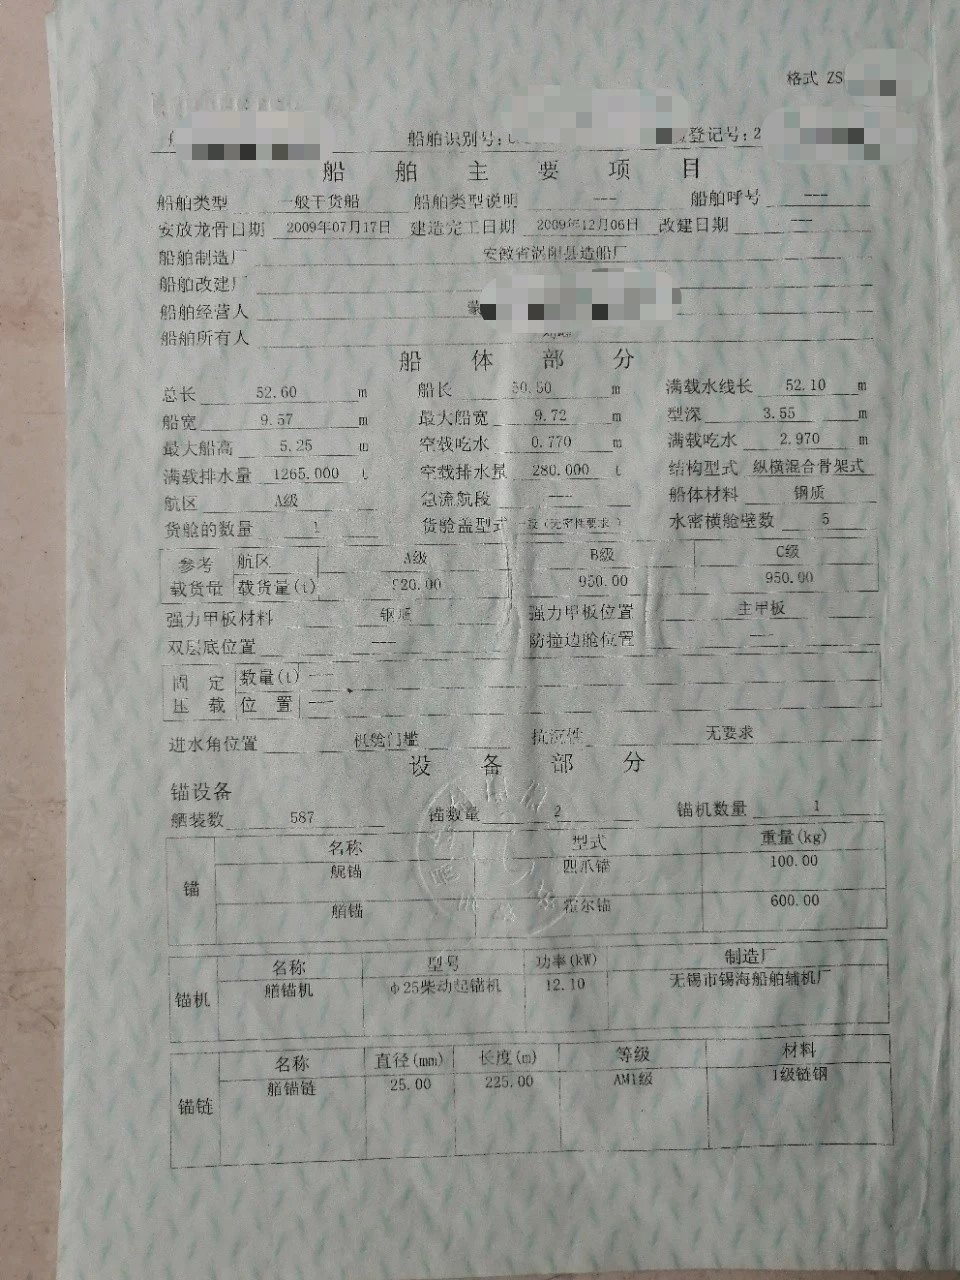 格式 ZS
船舶识别号: 登记号: 2
船舶主要项目
船舶类型 一般干货船 船舶类型说明 --- 船舶呼号 ---
安放龙骨日期 2009年07月17日 建造完工日期 2009年12月06日 改建日期 ---
船舶制造厂 安徽省涡阳县造船厂
船舶改建厂
船舶经营人 蒙
船舶所有人
船体部分
总长 52.60 m 船长 50.50 m 满载水线长 52.10 m
船宽 9.57 m 最大船宽 9.72 m 型深 3.55 m
最大船高 5.25 m 空载吃水 0.770 m 满载吃水 2.970 m
满载排水量 1265.000 t 空载排水量 280.000 t 结构型式 纵横混合骨架式
航区 A级 急流航段 --- 船体材料 钢质
货舱的数量 1 货舱盖型式 一般(无密性要求) 水密横舱壁数 5
参考 航区 A级 B级 C级
载货量 载货量(t) 920.00 950.00 950.00
强力甲板材料 钢质 强力甲板位置 主甲板
双层底位置 --- 防撞边舱位置 ---
固定 数量(t) ---
压载 位置 ---
进水角位置 机舱门槛 抗沉性 无要求
设备部分
锚设备
舾装数 587 锚数量 2 锚机数量 1
名称 型式 重量(kg)
锚 艉锚 四爪锚 100.00
艏锚 霍尔锚 600.00
名称 型号 功率(kW) 制造厂
锚机 艏锚机 φ25柴动起锚机 12.10 无锡市锡海船舶辅机厂
名称 直径(mm) 长度(m) 等级 材料
锚链 艏锚链 25.00 225.00 AM1级 1级链钢